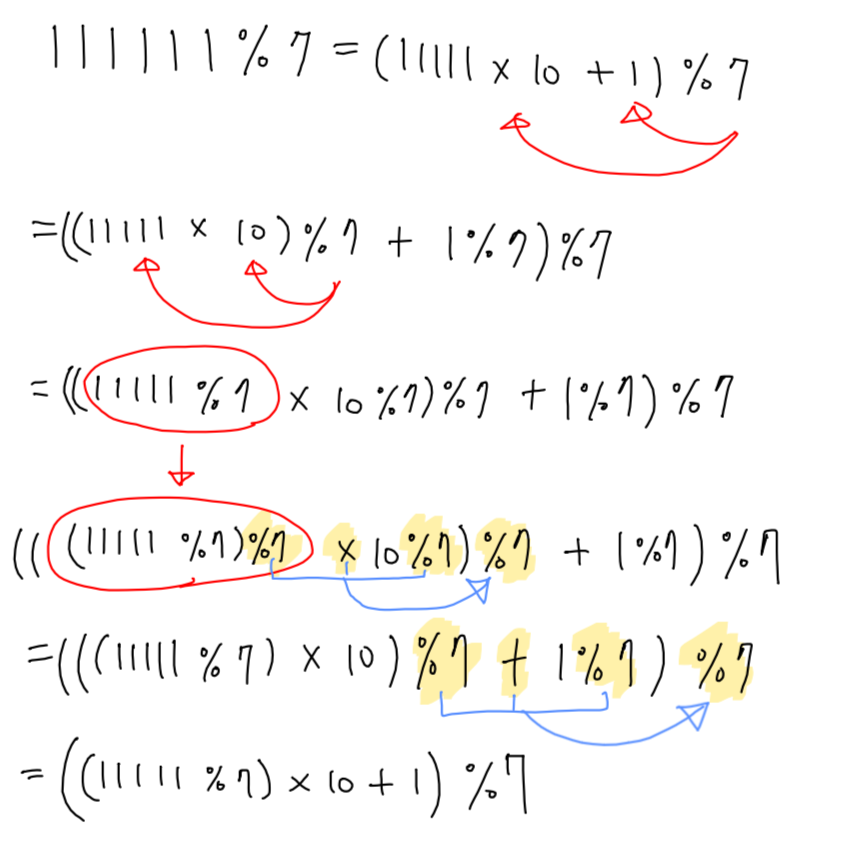 111111 % 7 = (11111 × 10 + 1) % 7
=((11111 × 10) % 7 + 1 % 7) % 7
= ((11111 % 7 × 10 % 7) % 7 + 1 % 7) % 7
(((11111 % 7) % 7 × 10 % 7) % 7 + 1 % 7) % 7
=(((11111 % 7) × 10) % 7 + 1 % 7) % 7
= ((11111 % 7) × 10 + 1) % 7